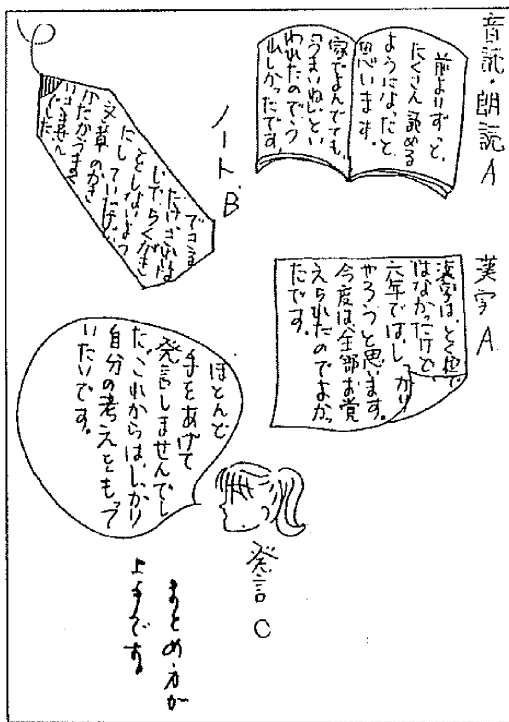 音読・朗読A
前よりずっと、
たくさん読める
ようになったと
思います。
家でよんでても、
「うまいね」とい
われたのでう
れしかったです。
漢字A
漢字は、とく意で
はなかったけど
六年では、しっかり
やろうと思います。
今度は全部お覚
えられたのでよかっ
たです。
ノート.B
できる
だけ
いでらくがき
をしないよう
にしていたけど
文章のかき
かたがうまく
いきません
でした
ほとんど
手をあげて
発言しませんでし
た。これからはしっかり
自分の考えをもって
いたいです。
発言C
まとめ方が
上手です